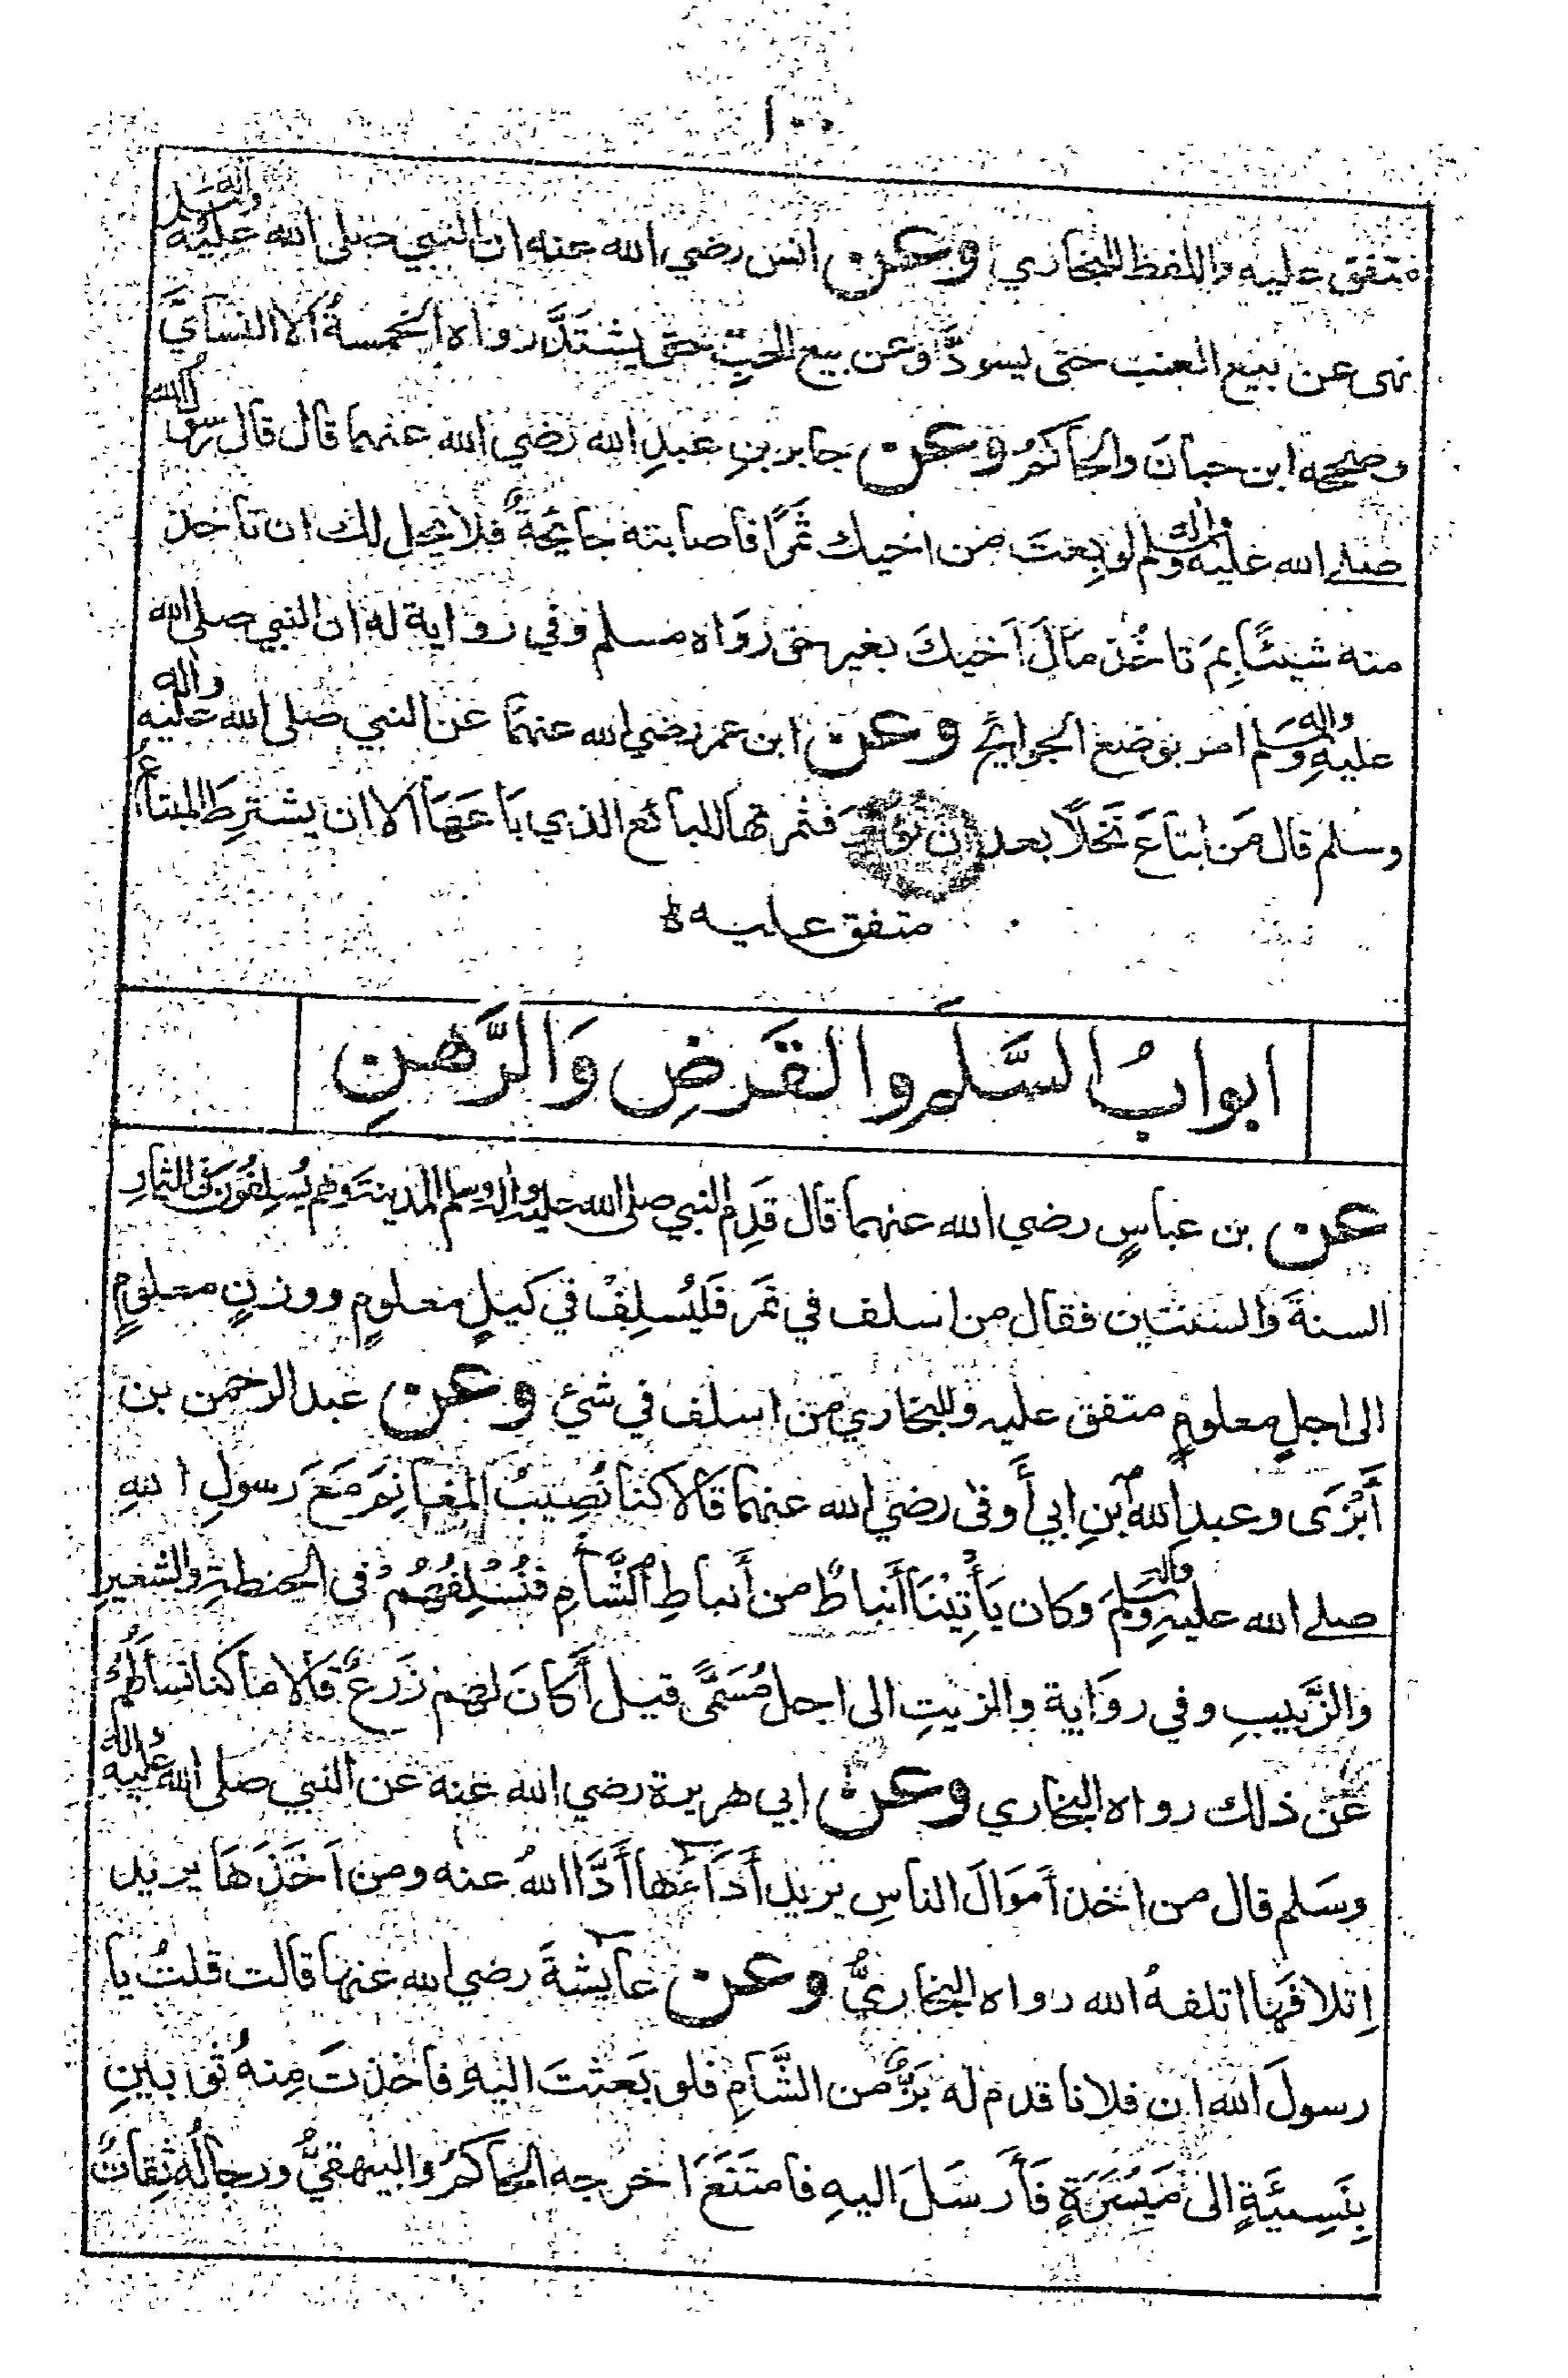 ١٠٠
متفق عليه واللفظ للبخاري وعن انس رضي الله عنه ان النبي صلى الله عليه واله وسلم
نهى عن بيع العنب حتى يسودَّ وعن بيع الحبِّ حتى يشتَدَّ رواه الخمسةُ الا النسايَّ
وصححه ابن حبانَ والحاكمُ وعن جابر بنِ عبدِ الله رضي الله عنهما قال قال رسولُ الله
صلى الله عليه واله وسلم لو بِعتَ من اخيك ثمرًا فاصابته جايحةٌ فلا يحل لك ان تاخذ
منه شيئًا بِمَ تاخُذ مالَ اَخيكَ بغير حق روَاه مسلم وفي رواية له ان النبي صلى الله
عليهِ واله وسلم امر بوضع الجوايح وعن ابن عمر رضي الله عنهما عن النبي صلى الله عليه واله
وسلم قال مَن ابتاعَ نَخلًا بعد ان تؤبَّرَ فثمرتها للبائع الذي بَاعَهَا الا ان يشترِطَ المبتاعُ
متفق عليه
ابوابُ السَّلَمِ والقَرضِ وَالرَّهنِ
عن بن عباسٍ رضي الله عنهما قال قَدِم النبي صلى الله عليه واله وسلم المدينة وَهُم يُسلِفُون فى الثمارِ
السنةَ والسنتين فقال من اسلف في ثمَر فَليُسلِفْ في كيلٍ معلومٍ ووزنٍ معلومٍ
الى اجلٍ معلومٍ متفق عليه وللبخاري من اسلف في شئ وعن عبد الرحمن بن
أَبْزَى وعبدِ اللهِ ابنِ ابي أَوفى رضي الله عنهما قالا كنا نُصيبُ المغانِمَ مَعَ رسولِ اللهِ
صلى الله عليهِ واله وسلمَ وكان يَأتِيْنَا أَنباطٌ من أنباطِ الشَّأمِ فنُسْلِفُهُمْ فى الحنطةِ والشعيرِ
والزَّبيبِ وفي روَاية والزيتِ الى اجل مُسَمًّى قيل أكانَ لهم زَرعٌ قالا ما كنا نسألُهُم
عَن ذلك رواه البخاري وعن ابي هريرة رضي الله عنه عن النبي صلى الله عليه واله
وسَلم قال من اخذ أَموَالَ الناسِ يريد أَدَآءَها أَدَّا اللهُ عنه ومن اَخَذَهَا يريد
اِتلافَها اتلفهُ الله رواه البخاريُّ وعن عايشةَ رضي الله عنها قالت قلتُ يا
رسولَ الله ان فلانا قدم له بَزٌّ من الشَّامِ فلو بَعثتَ اليهِ فاخذتَ مِنهُ ثوبينِ
بِنَسِيئَةٍ الى مَيْسَرَةٍ فَأرسَلَ اليهِ فامتَنَعَ اخرجه الحاكمُ والبيهقيُّ ورجالُه ثِقاتٌ